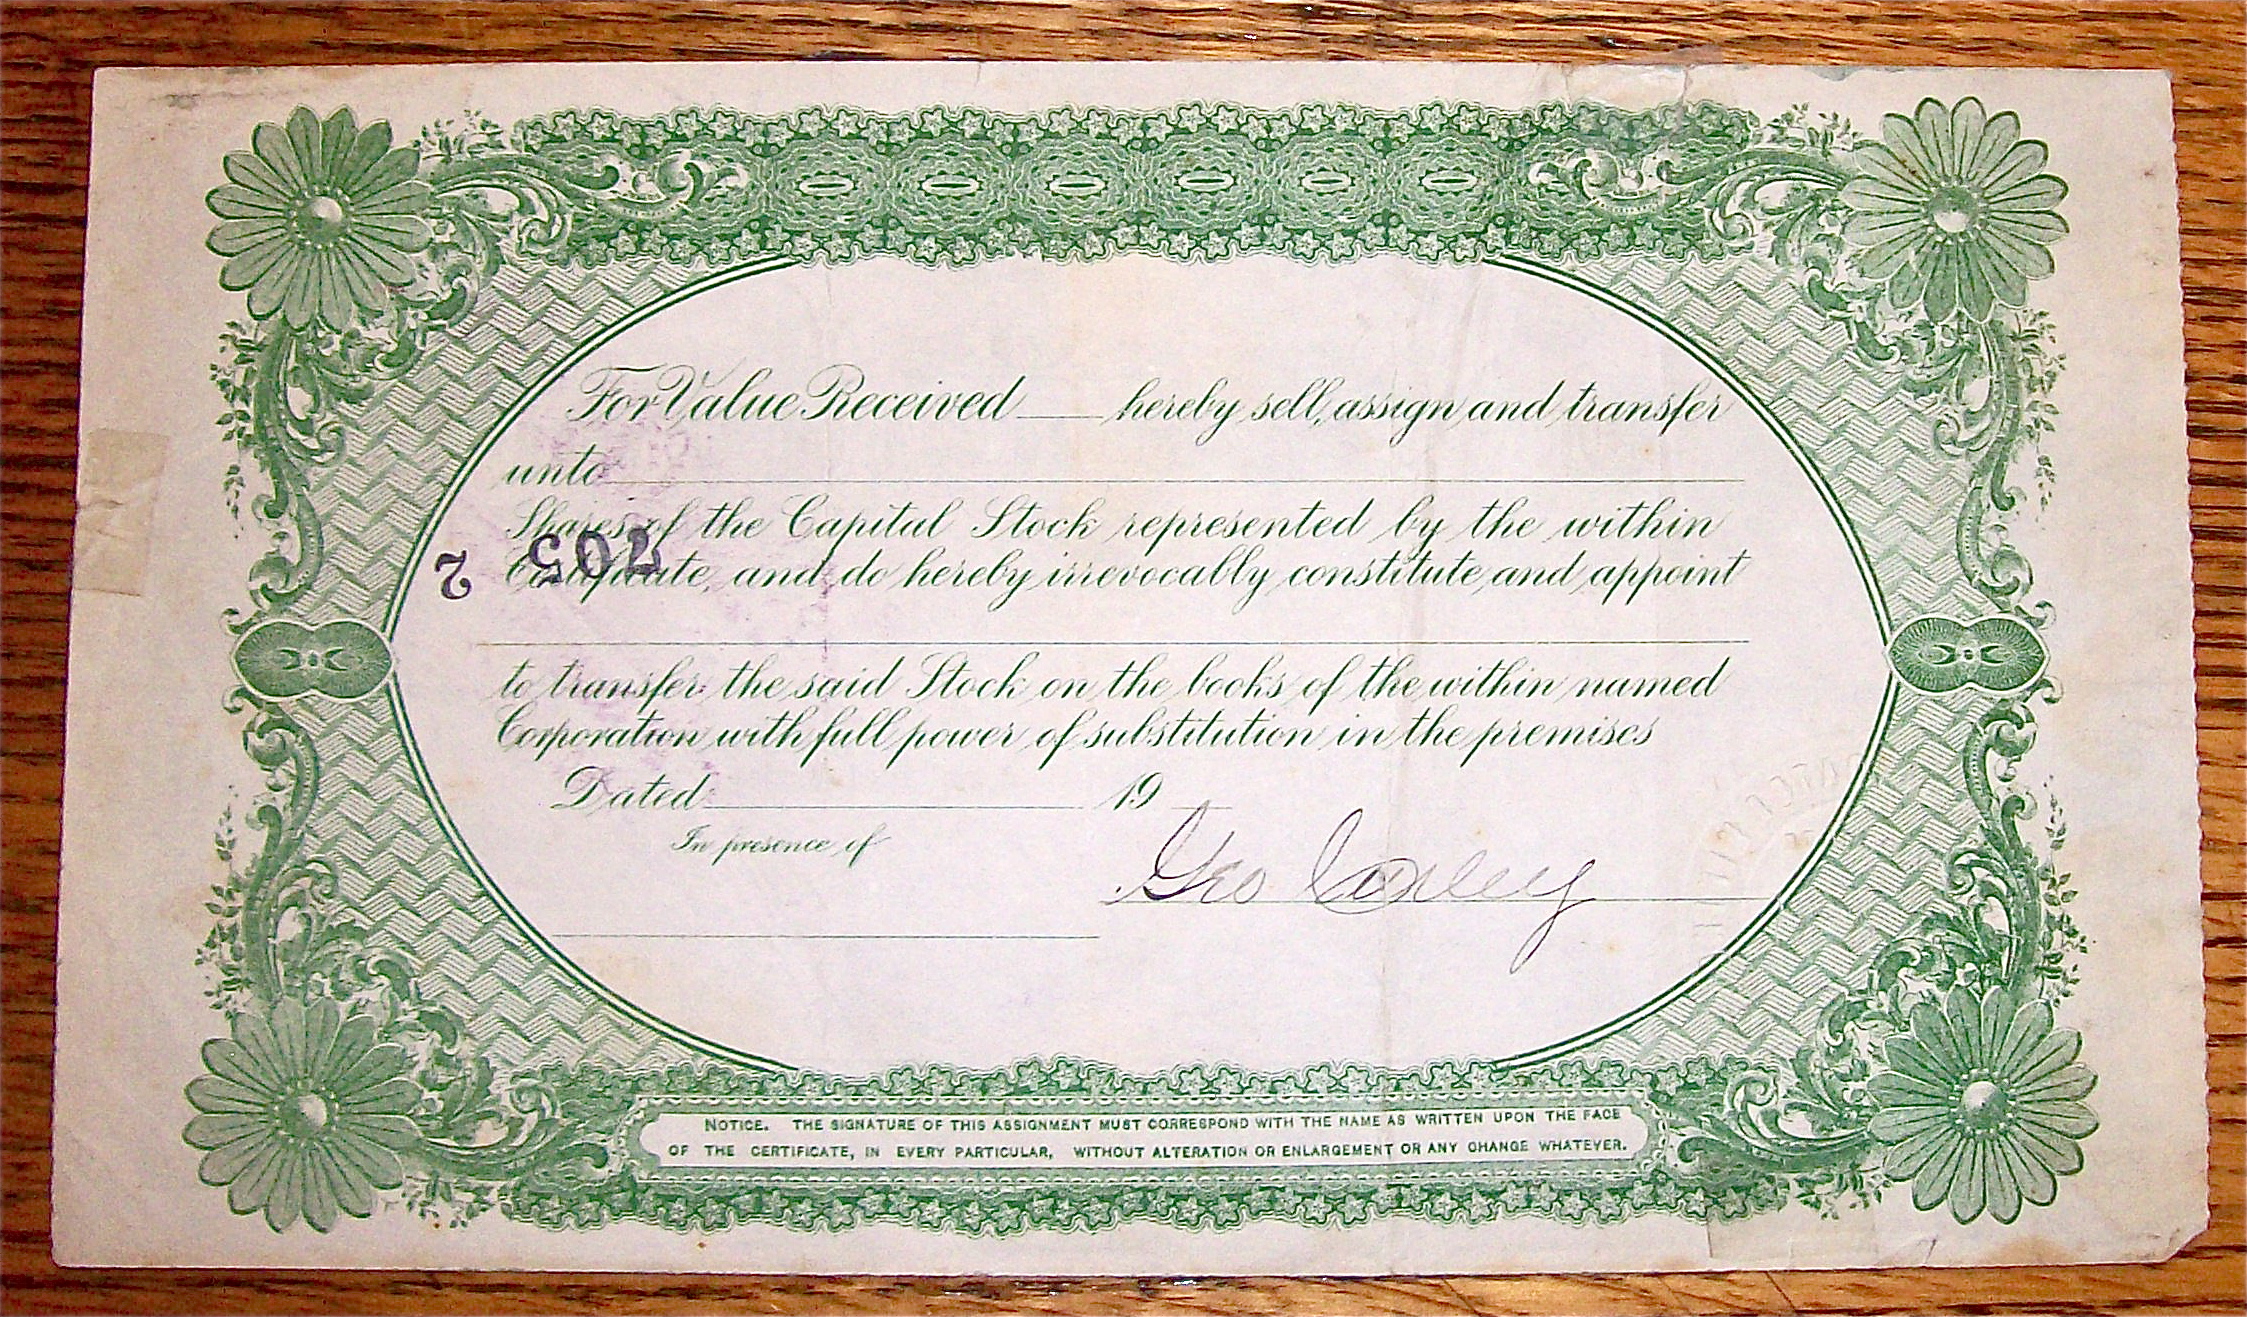 For Value Received ___ hereby sell, assign and transfer
unto
Shares of the Capital Stock represented by the within
Certificate, and do hereby irrevocably constitute and appoint
to transfer the said Stock on the books of the within named
Corporation with full power of substitution in the premises
Dated 19
In presence of
Geo
NOTICE. THE SIGNATURE OF THIS ASSIGNMENT MUST CORRESPOND WITH THE NAME AS WRITTEN UPON THE FACE
OF THE CERTIFICATE, IN EVERY PARTICULAR, WITHOUT ALTERATION OR ENLARGEMENT OR ANY CHANGE WHATEVER.